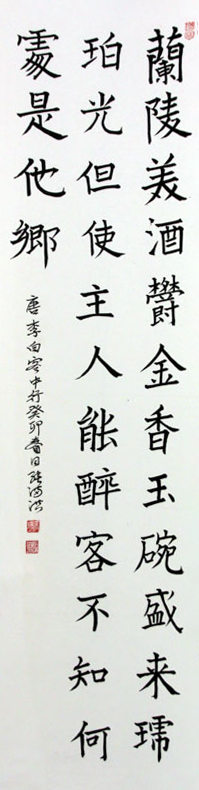 蘭陵美酒欝金香玉碗盛来琥
珀光但使主人能醉客不知何
處是他鄉
唐李白客中行癸卯春日